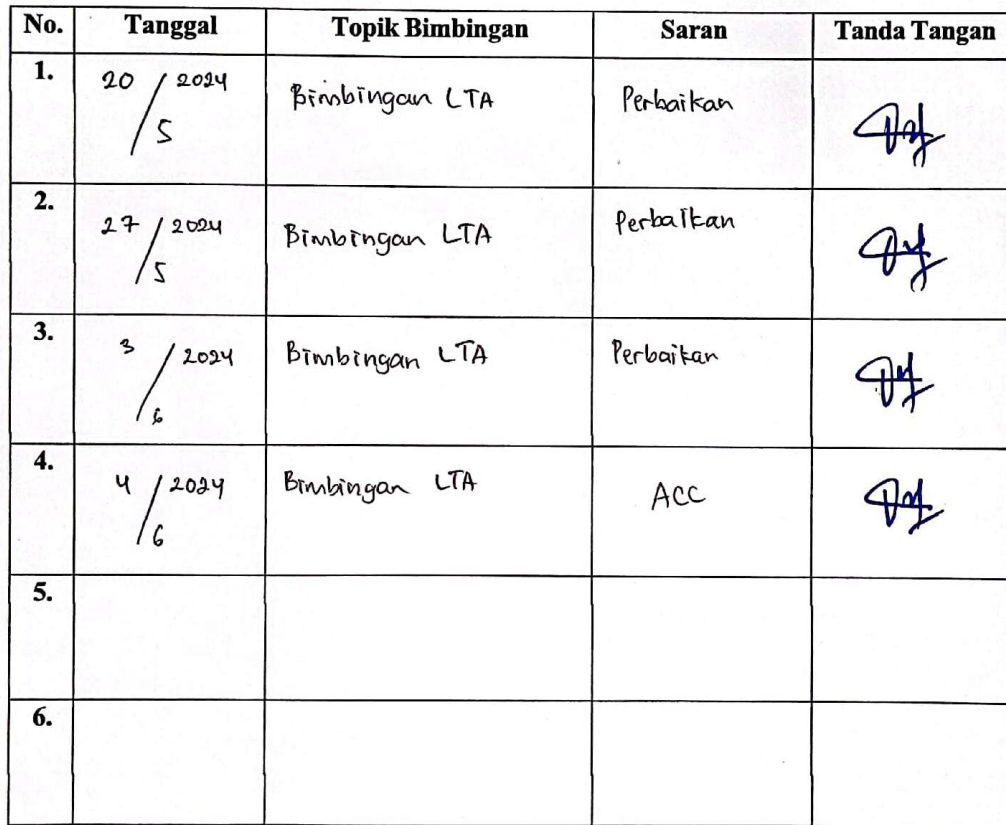 No. Tanggal Topik Bimbingan Saran Tanda Tangan
1. 20/5 2024 Bimbingan LTA Perbaikan
2. 27/5 2024 Bimbingan LTA Perbaikan
3. 3/6 2024 Bimbingan LTA Perbaikan
4. 4/6 2024 Bimbingan LTA ACC
5.
6.